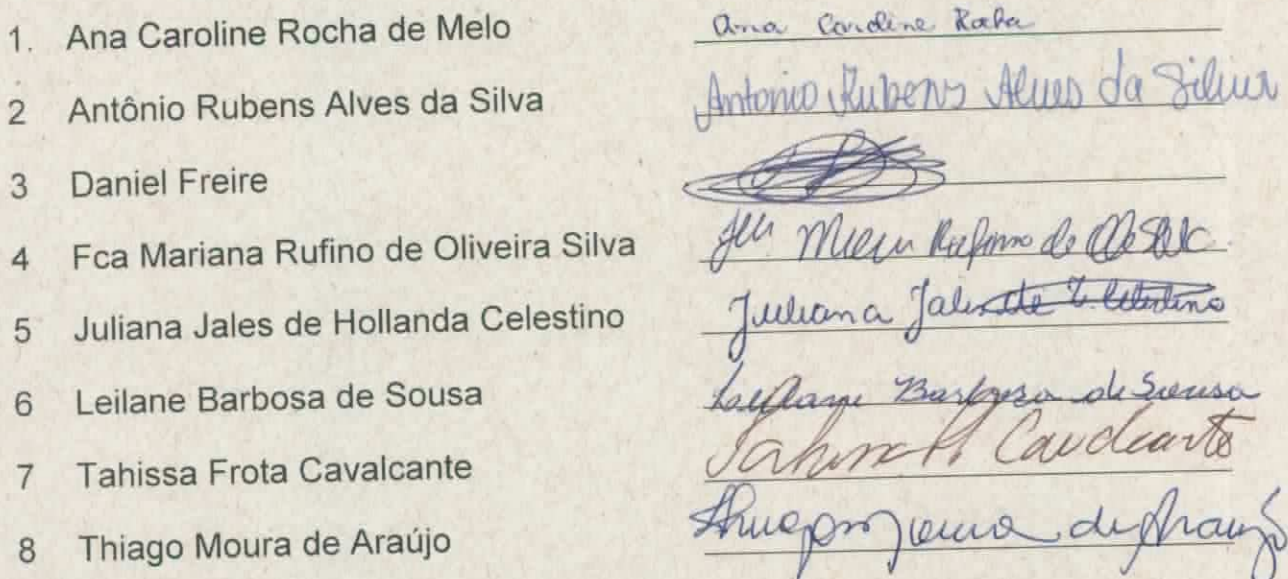 1. Ana Caroline Rocha de Melo Ana Caroline Rocha
2 Antônio Rubens Alves da Silva Antonio Rubens Alves da Silva
3 Daniel Freire
4 Fca Mariana Rufino de Oliveira Silva Rufino de
5 Juliana Jales de Hollanda Celestino Juliana Jales de H. Celestino
6 Leilane Barbosa de Sousa Leilane Barbosa de Sousa
7 Tahissa Frota Cavalcante Tahissa F Cavalcante
8 Thiago Moura de Araújo Thiago Moura de Araújo